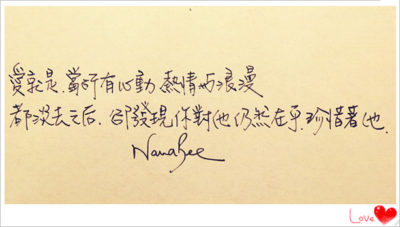 愛就是.當所有心動.熱情与浪漫
都淡去之后.卻發現你對他仍然在乎.珍惜著他.
NanaBee
Love